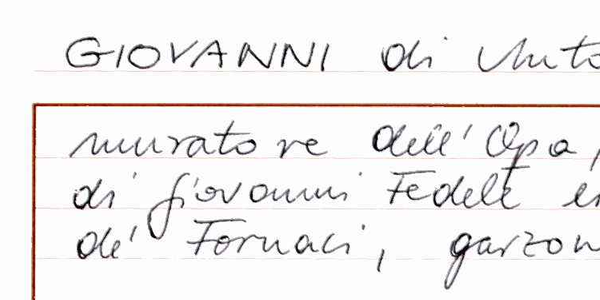 GIOVANNI di Anto
muratore dell' Opa,
di Giovanni Fedele e
de' Fornaci, garzon